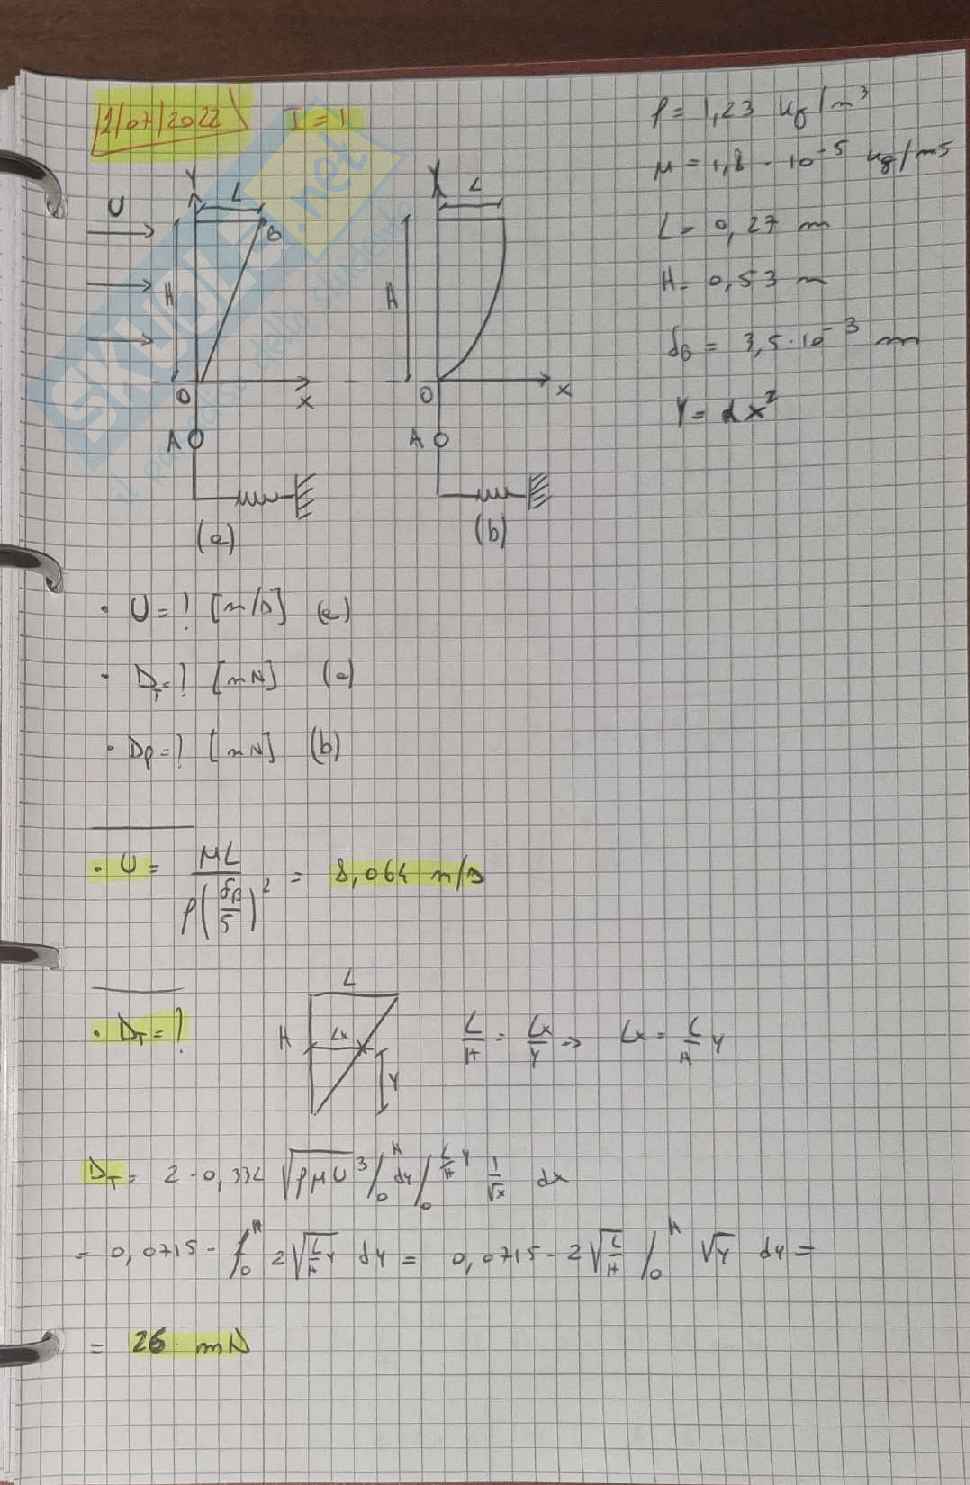 12/07/2022 I = 1
ρ = 1,23 kg/m³
μ = 1,8 · 10⁻⁵ kg/ms
L = 0,27 m
H = 0,53 m
δB = 3,5 · 10⁻³ m
Y = αx²
U
Y
L
B
H
O
X
A
(a)
Y
L
H
O
X
A
(b)
SKUOLA.net
· U = ? [m/s] (a)
· DT = ? [mN] (a)
· Dp = ? [mN] (b)
· U = μL / ρ(δB/5)² = 8,064 m/s
L
· DT = ? H Lx Y L/H = Lx/Y → Lx = L/H Y
DT = 2 · 0,332 √ρμU³ ∫₀ᴴ dy ∫₀^(L/H Y) 1/√x dx
= 0,0715 · ∫₀ᴴ 2√(L/H Y) dy = 0,0715 · 2√(L/H) ∫₀ᴴ √Y dy =
= 26 mN